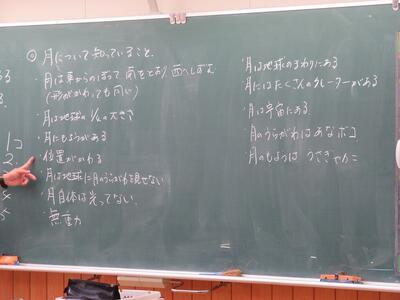 ◎月について知っていること。
・月は東からのぼって 南をとおり 西へしずむ
(形がかわっても同じ)
・月は地球の 1/4の大きさ
・月にもようがある
・位置がかわる
・月は地球に月のうらがわを見せない
・月自体は光ってない。
・無重力
月は地球のまわりにある
月にはたくさんのクレーターがある
月は宇宙にある
月のうらがわはあなボコ
月のもようは うさぎやカニ
1コ
2